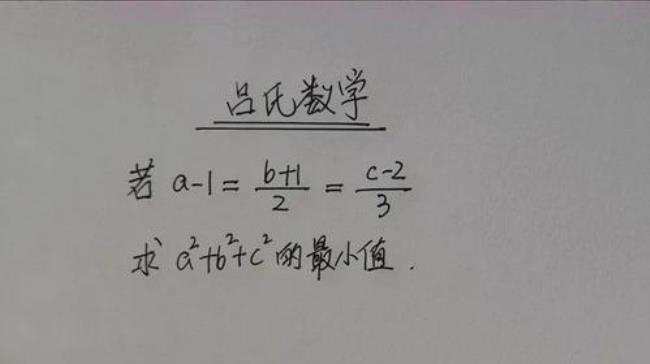 吕氏数学
若 a-1 = \frac{b+1}{2} = \frac{c-2}{3}
求 a²+b²+c² 的最小值.